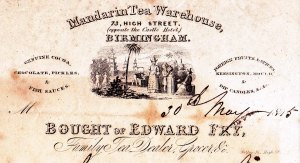 Mandarin Tea Warehouse,
73, HIGH STREET,
(opposite the Castle Hotel)
BIRMINGHAM.
GENUINE COCOA,
CHOCOLATE, PICKLES,
FISH SAUCES.
FOREIGN FRUITS,
KENSINGTON,
CANDLES, &c.
30 May
BOUGHT OF EDWARD FRY,
Family Tea Dealer, Grocer &c.